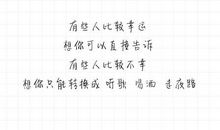 有些人比较幸运
想你可以直接告诉
有些人比较不幸
想你只能转换成 听歌 喝酒 走夜路